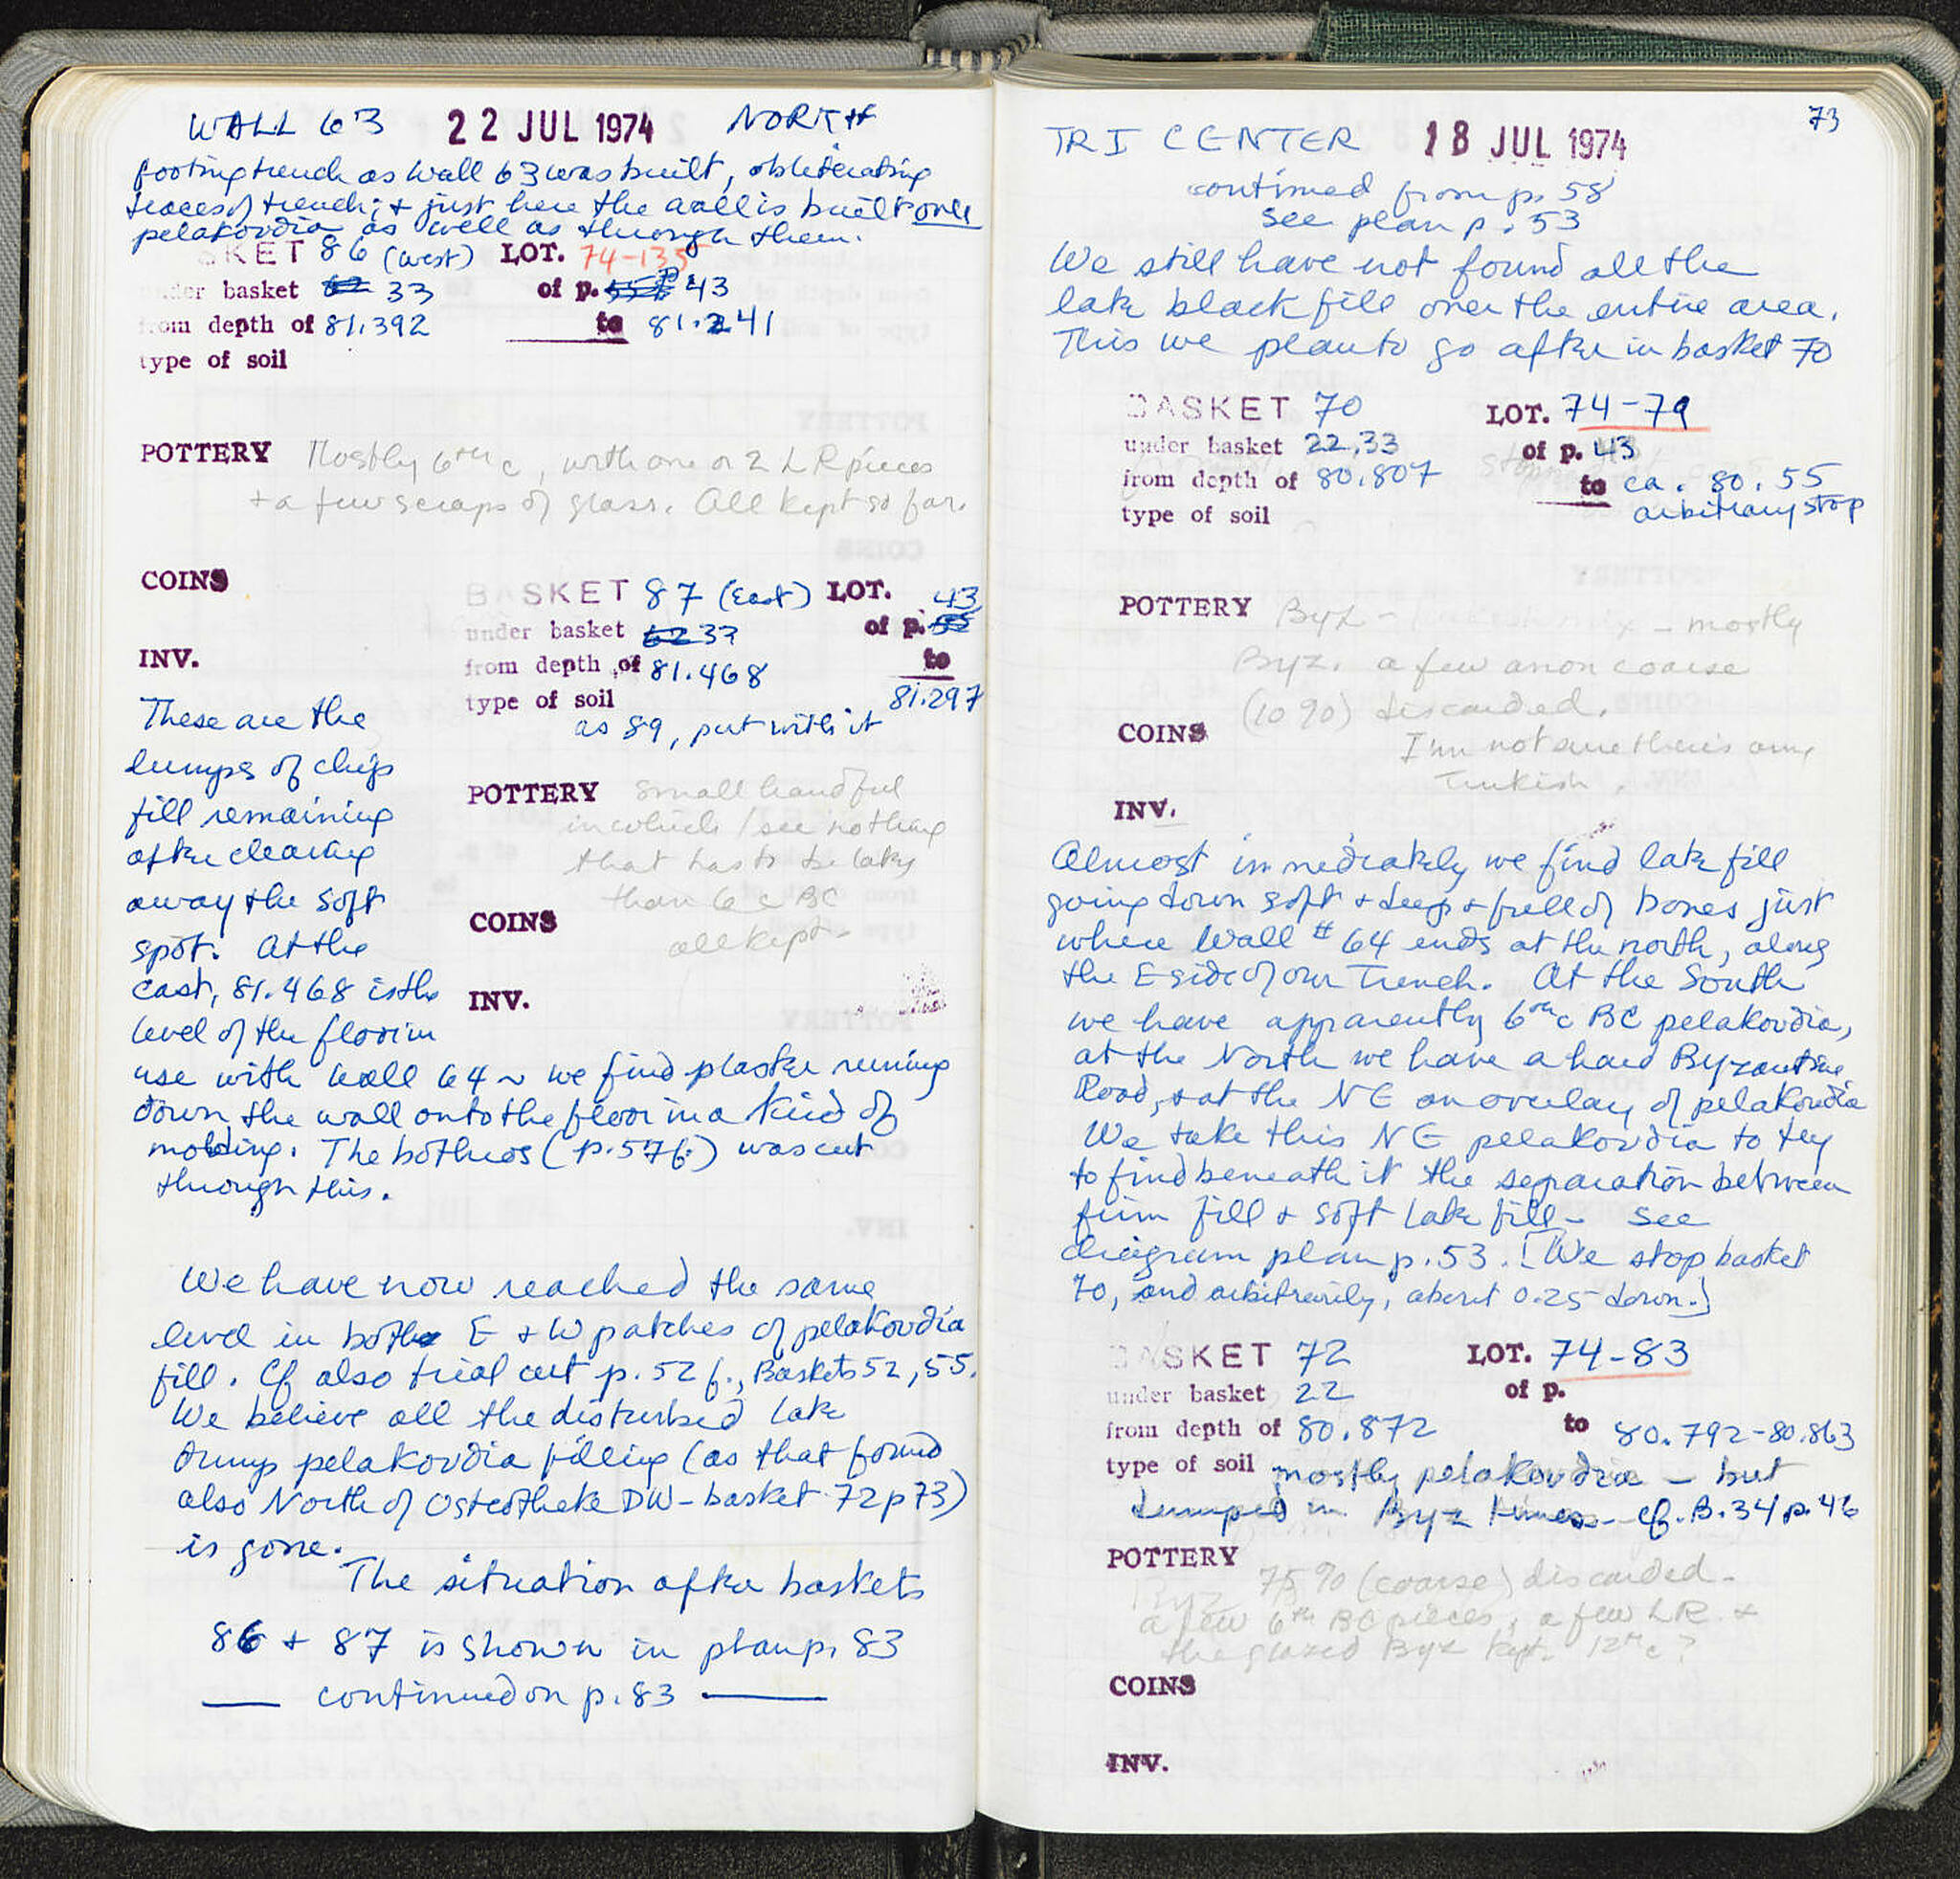 WALL 63 22 JUL 1974 NORTH
footing trench as Wall 63 was built, obliterating
traces of trench; + just here the wall is built over
pelakovdia as well as through them.
SKET 86 (West) LOT. 74-135
under basket 33 of p. 43
from depth of 81.392 to 81.241
type of soil
POTTERY Mostly 6th c, with one or 2 LR pieces
+ a few scraps of glass. All kept so far.
COINS
INV.
BASKET 87 (East) LOT.
under basket 33 of p. 43
from depth of 81.468 to 81.297
type of soil
as 89, put with it
POTTERY small handful
in which I see nothing
that has to be later
than 6 c BC
all kept-
COINS
INV.
These are the
lumps of chip
fill remaining
after clearing
away the soft
spot. At the
east, 81.468 is the
level of the floor in
use with Wall 64 ~ we find plaster running
down the wall onto the floor in a kind of
molding. The bothros (p. 57 f.) was cut
through this.
We have now reached the same
level in both E + W patches of pelakovdia
fill. Cf also trial cut p. 52 f., Baskets 52, 55.
We believe all the disturbed late
dump pelakovdia filling (as that found
also North of Osteotheke DW - basket 72 p 73)
is gone.
The situation after baskets
86 + 87 is shown in plan p. 83
continued on p. 83
73
TR I CENTER 18 JUL 1974
continued from p. 58
see plan p. 53
We still have not found all the
late black fill over the entire area.
This we plan to go after in basket 70
BASKET 70 LOT. 74-79
under basket 22, 33 of p. 43
from depth of 80.807 to ca. 80.55
arbitrary stop
type of soil
POTTERY Byz - mostly
Byz. a few anon coarse
(10 %) discarded.
I'm not sure there's any
Turkish.
COINS
INV.
Almost immediately we find late fill
going down soft + deep + full of bones just
where Wall # 64 ends at the north, along
the E side of our Trench. At the South
we have apparently 6th c BC pelakovdia,
at the North we have a hard Byzantine
Road, + at the NE an overlay of pelakovdia
We take this NE pelakovdia to try
to find beneath it the separation between
firm fill + soft late fill - see
diagram plan p. 53. [We stop basket
70, and arbitrarily, about 0.25 down.]
BASKET 72 LOT. 74-83
under basket 22 of p.
from depth of 80.872 to 80.792-80.863
type of soil mostly pelakovdia - but
dumped in Byz times - cf. B. 34 p. 46
POTTERY
Byz 75 % (coarse) discarded -
a few 6th BC pieces, a few LR +
the glazed Byz kept. 12th c?
COINS
INV.